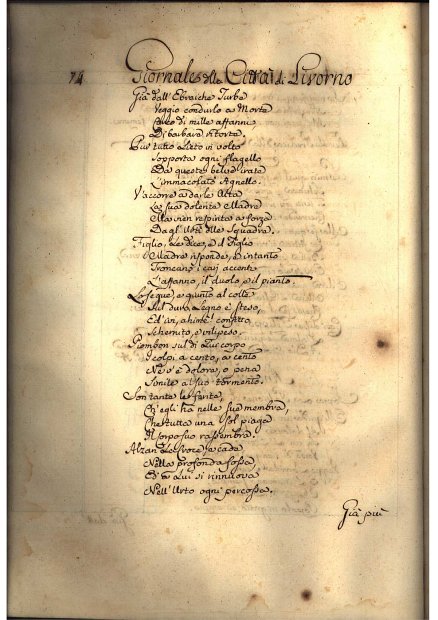 74 Giornale della Città di Livorno
Già dall' Ebraiche Turbe
Veggio condurlo a Morte
Carco di mille affanni
Di barbara ritorta.
Pur tutto Lieto in volto
Sopporta ogni flagello
Da queste belve irate
L'immacolato Agnello.
V'accorre a darle Aita
La sua dolente Madre
Ma vien respinta a forza
Dagl' delle Squadra.
Figlio, Le dice, e il Figlio
Madre risponde, e intanto
Troncano i cari accenti
L'affanno, il duolo, e il pianto.
Lo segue, e giunto al colle
Sul duro Legno è steso,
Ed ivi, ahimè! confitto
Schernito, e vilipeso.
Piomban sul di Lui corpo
I colpi a cento, a cento
Nè v'è dolore, o pena
Simile al suo tormento.
Son tante le ferite,
Ch'egli ha nelle sue membra,
Che tutta una sol piaga
Il corpo suo rassembra.
Alzan La Croce, e cada
Nella profonda fossa
Ed a Lui si rinnuova
Nell' Urto ogni percossa.
Già più